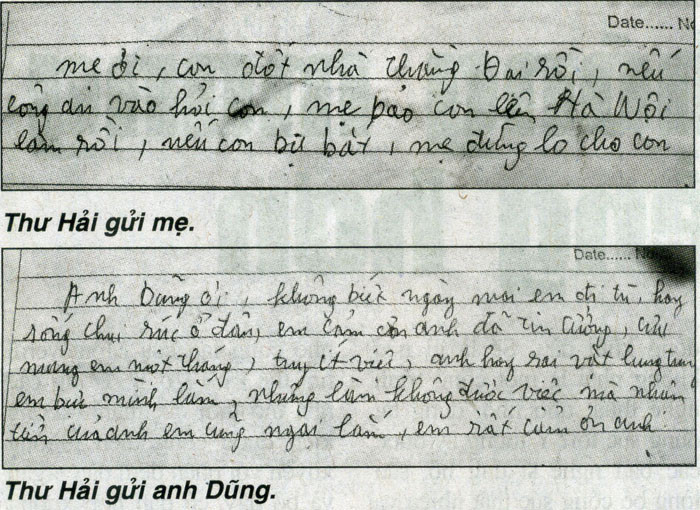 Date...... No
mẹ ơi, con đốt nhà thằng Đại rồi, nếu
công an vào hỏi con, mẹ bảo con lên Hà Nội
làm rồi, nếu con bị bắt, mẹ đừng lo cho con
Thư Hải gửi mẹ.
Date...... No
Anh Dũng ơi, không biết ngày mai em đi tù, hay
sống chui rúc ở đâu, em cảm ơn anh đã tin tưởng,
mang em một tháng, tuy ít việc, anh hay sai vặt lung tung
em bực mình lắm, nhưng làm không được việc mà nhận
tiền của anh em cũng ngại lắm, em rất cảm ơn anh
Thư Hải gửi anh Dũng.